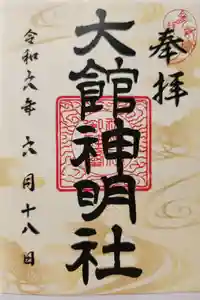 奉拝
大館神明社
令和六年 六月十八日